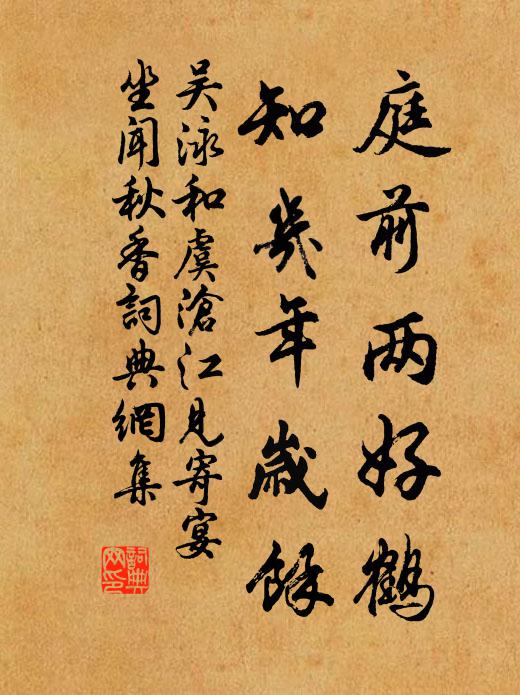 庭前两好鹤
知几年岁馀
吴泳和虞滄江见寄宴
坐闻秋香詞典網集
詞典网印